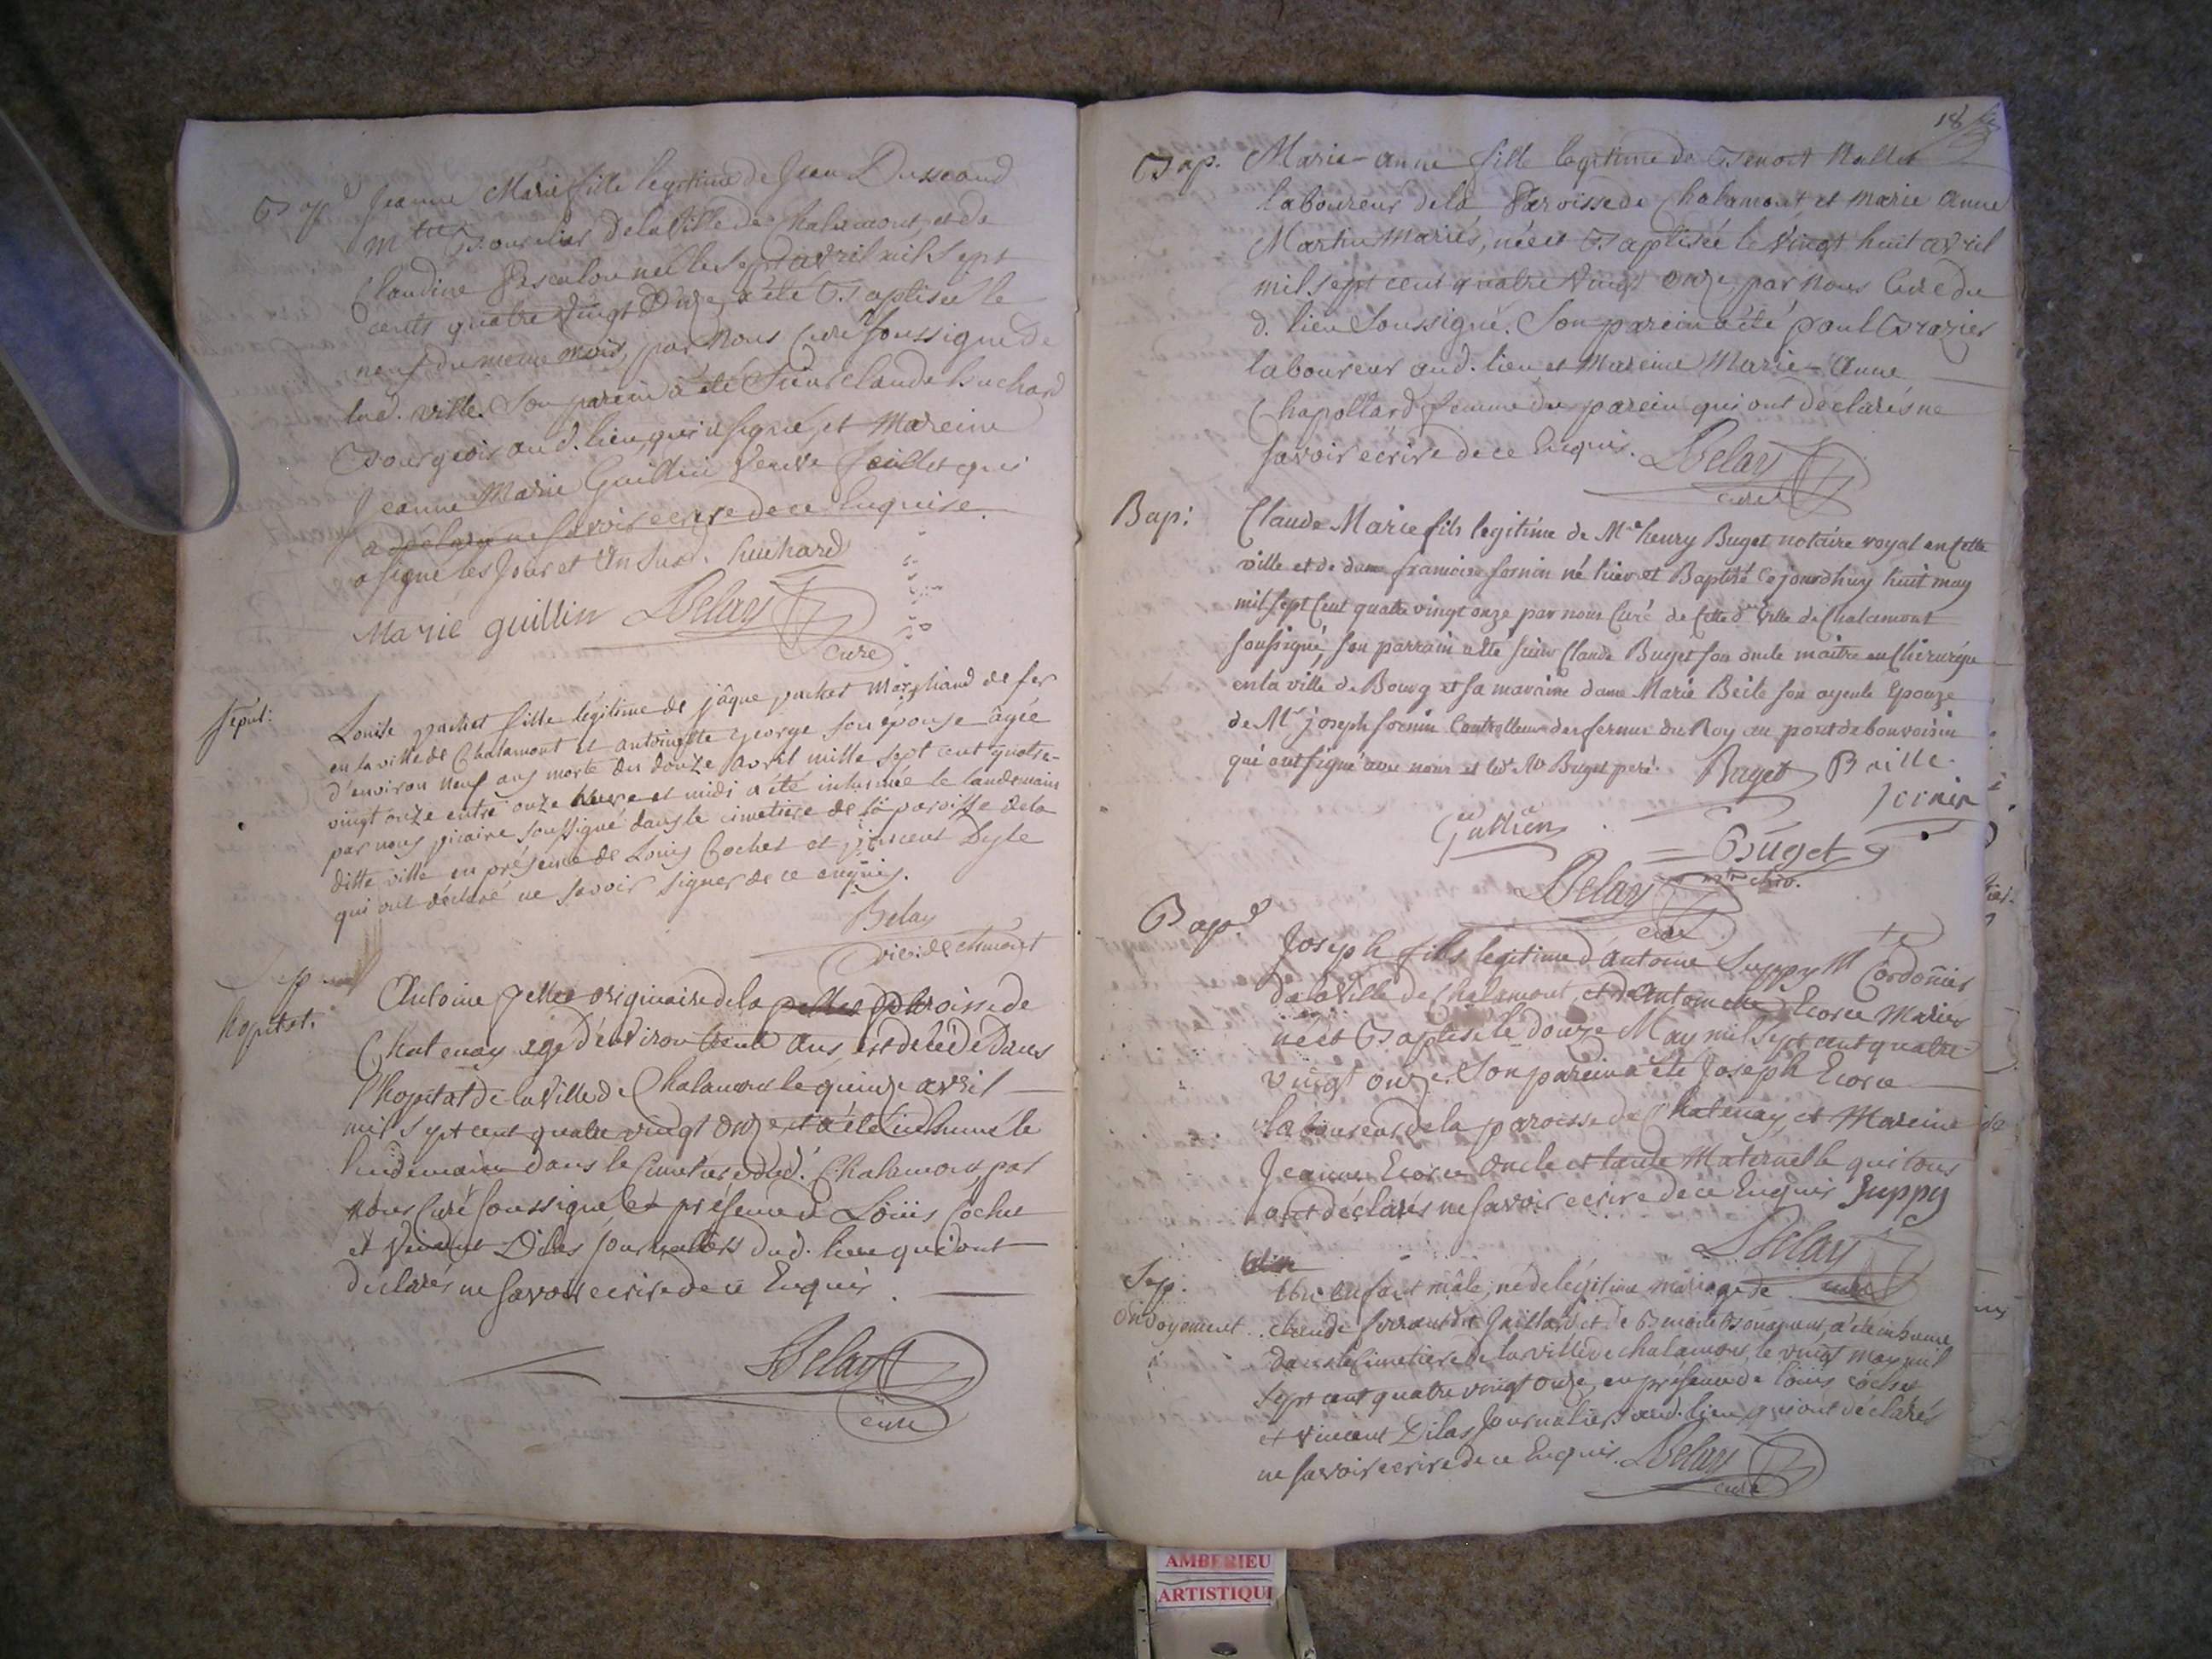 Bap.e Jeanne Marie fille legitime de Jean Dusseaud
m.tre Bourelier de la Ville de Chalamont, et de
Claudine née le sept avril mil sept
cents quatre vingt onze, a été Baptisée le
neuf du meme mois, par Nous Curé soussigné de
lad. ville. Son parein a été Sieur Claude huchard
Bourgeois aud. lieu, qui a signé, et Mareine
Jeanne Marie Guillin Veuve qui
a déclaré ne savoir ecrire de ce Enquise.
a signé les Jour et An susd. huchard
Marie guillin Belay
curé
sepul: Louise pachet fille légitime de jâque pachet Marchand de fer
en la ville de Chalamont et antoinette george son épouse âgée
d'environ neuf ans morte du douze avril mille sept cent quatre-
vingt onze entre onze heure et midi a été inhumée le landemain
par nous vicaire soussigné dans le cimetiere de la paroisse de la
ditte ville en présence de Louis Cochet et vincent Dyle
qui ont déclaré ne savoir signer de ce enquis.
Belay
vic. de chmont
Sep
hopital. Antoine originaire de la paroisse de
Chatenay agé d'environ trente Ans est décédé Dans
l'hopital de la Ville de Chalamont le quinze avril
mil sept cent quatre vingt onze, et a été inhumé le
lendemain dans le Cimetiere dud. Chalamont, par
nous Curé soussigné en présence de Louis Cochet
et Vincent Dilas journaliers dud. lieu qui ont
declarés ne savoir ecrire de ce Enquis.
Belay
curé
18
Bap. Marie-anne fille legitime de Benoit Rallet
laboureur de la Paroisse de Chalamont et marie Anne
Martin Mariés, née et Baptisée le vingt huit avril
mil sept cent quatre vingt onze par nous Curé du
d. lieu soussigné. Son parein a été paul Brazier
laboureur aud. lieu et Mareine Marie-Anne
Chapollard femme du parein qui ont déclarés ne
savoir ecrire de ce Enquis. Belay
curé
Bap: Claude Marie fils legitime de M.e henry Buget notaire royal en cette
ville et de dame francoise fornin né hier et Baptisé ce jourdhuy huit may
mil sept cent quatre vingt onze par nous Curé de cette d. Ville de Chalamont
soussigné, son parrain a été sieur Claude Buget son oncle maitre en Chirurgie
en la ville de Bourg et sa maraine dame Marie Beile son ayeule Epouze
de M.r joseph fornin Controlleur des fermes du Roy au pont de bonvoisin
qui ont signé avec nous et led. M.r Buget peré. Buget Beille
fornin
Buget
m.tre chir.
Belay
curé
Bap.e Joseph fils legitime d'Antoine Suppy M.tre Cordonier
de la Ville de Chalamont, et d'Antoinette Ecorce Mariés
né et Baptisé le douze May mil sept cent quatre-
vingt onze. Son parein a été Joseph Ecorce
laboureur de la paroisse de Chatenay, et Mareine
Jeanne Ecorce Oncle et tante Maternelle qui tous
ont déclarés ne savoir ecrire de ce Enquis Suppy
Belay
curé
Sep.
Ondoyement. Un enfant mâle, né de légitime mariage de
claude ferrand dit Gaillard et de a été inhumé
dans le Cimetiere de la ville de chalamont, le vingt may mil
sept cent quatre vingt onze, en présence de louis cochet
et vincent Dilas Journaliers aud. lieu, qui ont déclarés
ne savoir ecrire de ce Enquis. Belay
curé
AMBERIEU
ARTISTIQU